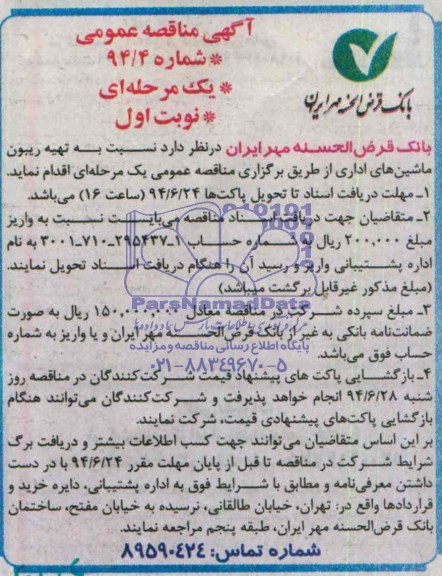 آگهی مناقصه عمومی
* شماره ۹۴/۴
* یک مرحله‌ای
* نوبت اول
بانک قرض‌الحسنه مهر ایران
بانک قرض‌الحسنه مهر ایران درنظر دارد نسبت به تهیه ریبون
ماشین‌های اداری از طریق برگزاری مناقصه عمومی یک مرحله‌ای اقدام نماید.
۱ـ مهلت دریافت اسناد تا تحویل پاکت‌ها ۹۴/۶/۲۴ (ساعت ۱۶) می‌باشد.
۲ـ متقاضیان جهت دریافت اسناد مناقصه می‌بایست نسبت به واریز
مبلغ ۲۰۰,۰۰۰ ریال به شماره حساب ۱ـ۲۹۵۴۳۷ـ۷۱۰ـ۳۰۰۱ به نام
اداره پشتیبانی واریز و رسید آن را هنگام دریافت اسناد تحویل نمایند.
(مبلغ مذکور غیرقابل برگشت میباشد)
ParsNamadData
۳ـ مبلغ سپرده شرکت در مناقصه معادل ۱۵۰,۰۰۰,۰۰۰ ریال به صورت
ضمانت‌نامه بانکی به غیر از بانک قرض‌الحسنه مهر ایران و یا واریز به شماره
حساب فوق می‌باشد.
پایگاه اطلاع رسانی مناقصه و مزایده
۰۲۱-۸۸۳۴۹۶۷۰-۵
۴ـ بازگشایی پاکت های پیشنهاد قیمت شرکت‌کنندگان در مناقصه روز
شنبه ۹۴/۶/۲۸ انجام خواهد پذیرفت و شرکت‌کنندگان می‌توانند هنگام
بازگشایی پاکت‌های پیشنهادی قیمت، شرکت نمایند.
بر این اساس متقاضیان می‌توانند جهت کسب اطلاعات بیشتر و دریافت برگ
شرایط شرکت در مناقصه تا قبل از پایان مهلت مقرر ۹۴/۶/۲۴ با در دست
داشتن معرفی‌نامه و مطابق با شرایط فوق به اداره پشتیبانی، دایره خرید و
قراردادها واقع در: تهران، خیابان طالقانی، نرسیده به خیابان مفتح، ساختمان
بانک قرض‌الحسنه مهر ایران، طبقه پنجم مراجعه نمایند.
شماره تماس: ۸۹۵۹۰۴۲۴